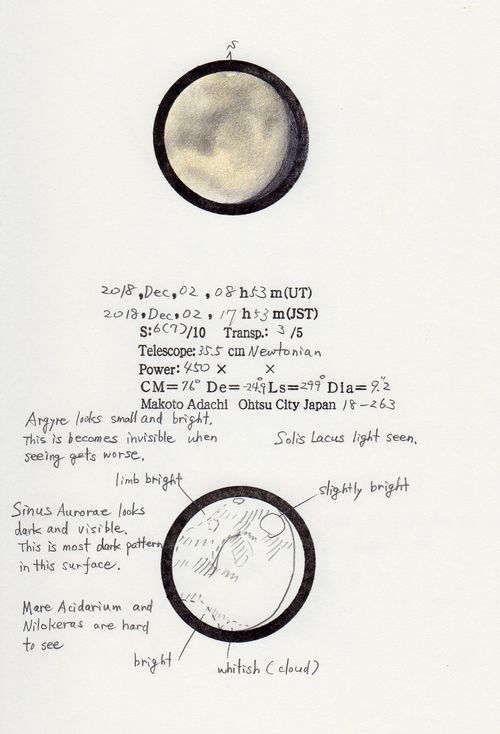 S
2018, Dec, 02, 08 h 53 m (UT)
2018, Dec, 02, 17 h 53 m (JST)
S: 6(7)/10 Transp.: 3 /5
Telescope: 35.5 cm Newtonian
Power: 450 × ×
CM= 76° De= -24.9 Ls= 299° Dia= 9."2
Makoto Adachi Ohtsu City Japan 18-263
Argyre looks small and bright.
This is becomes invisible when
seeing gets worse.
Solis Lacus light seen.
limb bright
slightly bright
Sinus Aurorae looks
dark and visible.
This is most dark pattern
in this surface.
Mare Acidarium and
Nilokeras are hard
to see
bright
whitish (cloud)